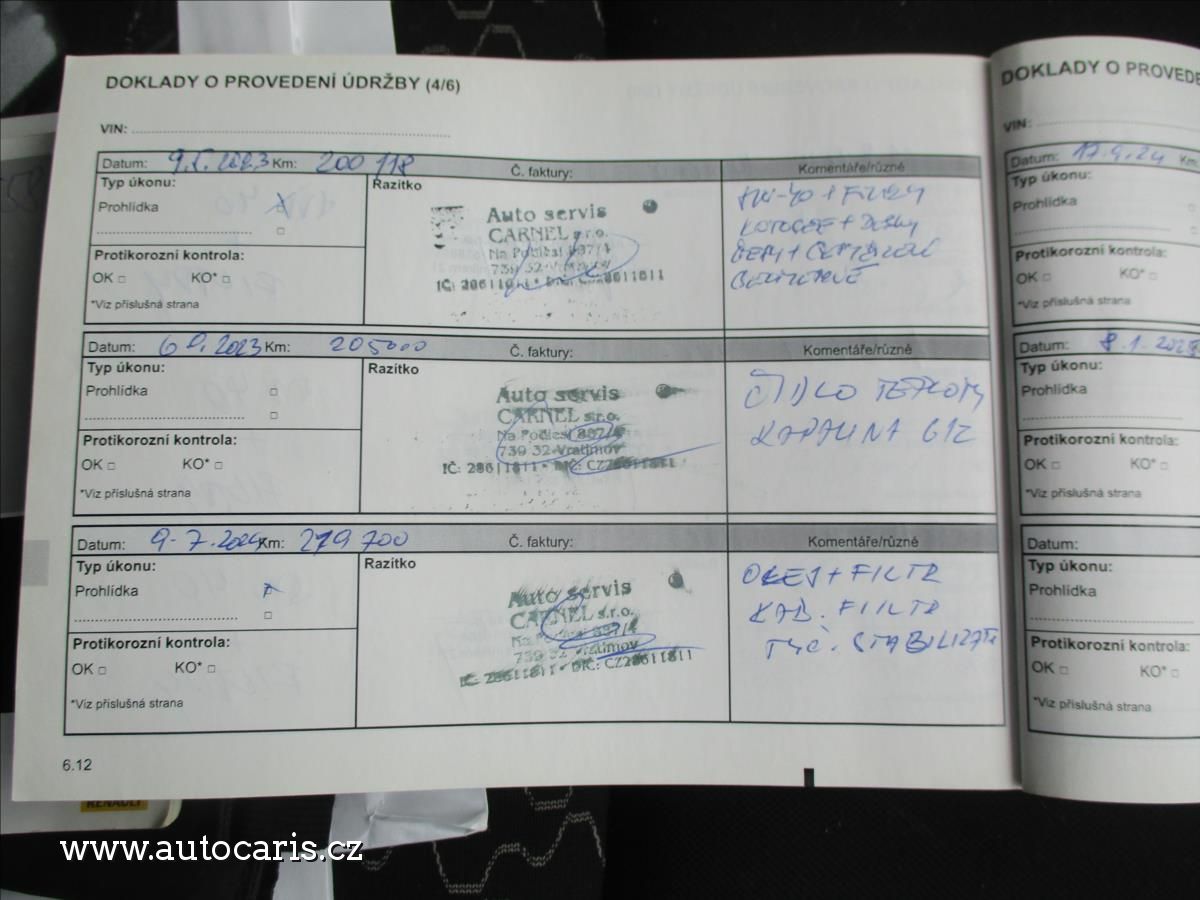 DOKLADY O PROVEDENÍ ÚDRŽBY (4/6)
VIN:
Datum: 2023 Km: 200 118 Č. faktury: Komentáře/různé
Typ úkonu:
Prohlídka
Protikorozní kontrola:
OK □ KO* □
*Viz příslušná strana
Razítko
Auto servis
CARNEL s.r.o.
Na Podlesí 897/4
739 32 Vratimov
IČ: 28611811 • DIČ: CZ28611811
Datum: 2023 Km: 205000 Č. faktury: Komentáře/různé
Typ úkonu:
Prohlídka □
□
Protikorozní kontrola:
OK □ KO* □
*Viz příslušná strana
Razítko
Auto servis
CARNEL s.r.o.
Na Podlesí 897/4
739 32 Vratimov
IČ: 28611811 • DIČ: CZ28611811
ČIDLO TEPLOTY
KAPALINA G12
Datum: 9.7.2024 Km: 279 700 Č. faktury: Komentáře/různé
Typ úkonu:
Prohlídka
□
Protikorozní kontrola:
OK □ KO* □
*Viz příslušná strana
Razítko
Auto servis
CARNEL s.r.o.
Na Podlesí 897/4
739 32 Vratimov
IČ: 28611811 • DIČ: CZ28611811
OLEJ + FILTR
KAB. FILTR
TYČ. STABILIZÁT
6.12
DOKLADY O PROVEDE
VIN:
Datum: 17.9.24 Km
Typ úkonu:
Prohlídka
Protikorozní kontrola:
OK □ KO* □
*Viz příslušná strana
Datum: 8.1.202
Typ úkonu:
Prohlídka
Protikorozní kontrola:
OK □ KO* □
*Viz příslušná strana
Datum:
Typ úkonu:
Prohlídka
Protikorozní kontrola:
OK □ KO* □
*Viz příslušná strana
RENAULT
www.autocaris.cz